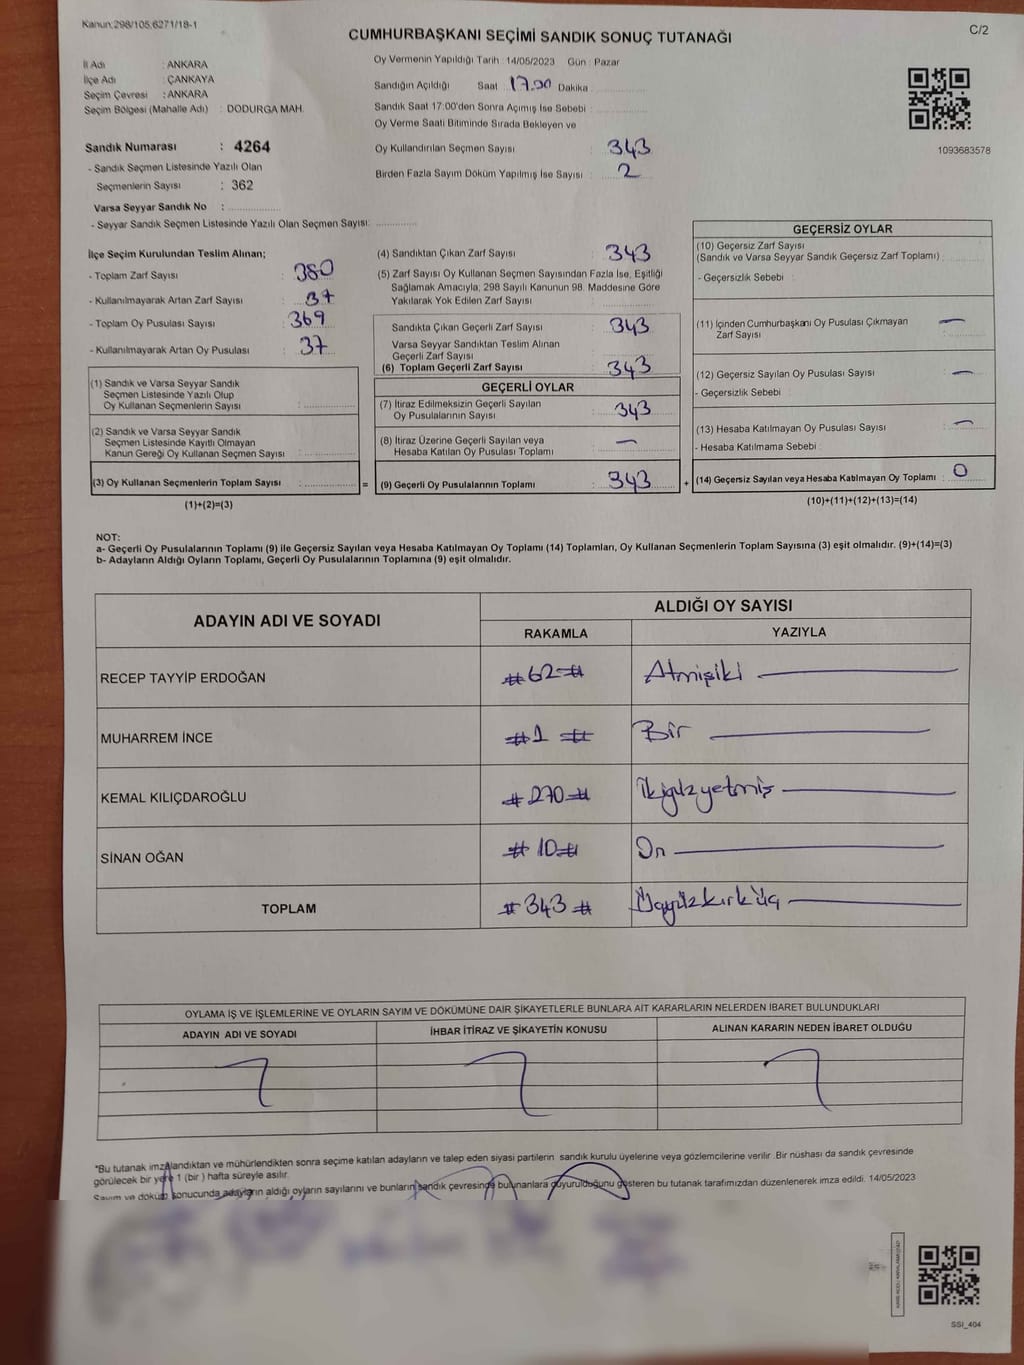 Kanun:298/105,6271/18-1
C/2
CUMHURBAŞKANI SEÇİMİ SANDIK SONUÇ TUTANAĞI
İl Adı : ANKARA
İlçe Adı : ÇANKAYA
Seçim Çevresi : ANKARA
Seçim Bölgesi (Mahalle Adı) : DODURGA MAH.
Sandık Numarası : 4264
- Sandık Seçmen Listesinde Yazılı Olan
Seçmenlerin Sayısı : 362
Varsa Seyyar Sandık No :
- Seyyar Sandık Seçmen Listesinde Yazılı Olan Seçmen Sayısı:
Oy Vermenin Yapıldığı Tarih : 14/05/2023 Gün : Pazar
Sandığın Açıldığı Saat 17.00 Dakika
Sandık Saat 17:00'den Sonra Açımış İse Sebebi :
Oy Verme Saati Bitiminde Sırada Bekleyen ve
Oy Kullandırılan Seçmen Sayısı : 343
Birden Fazla Sayım Döküm Yapılmış İse Sayısı : 2
1093683578
İlçe Seçim Kurulundan Teslim Alınan;
- Toplam Zarf Sayısı : 380
- Kullanılmayarak Artan Zarf Sayısı : 37
- Toplam Oy Pusulası Sayısı : 369
- Kullanılmayarak Artan Oy Pusulası : 37
(1) Sandık ve Varsa Seyyar Sandık
Seçmen Listesinde Yazılı Olup
Oy Kullanan Seçmenlerin Sayısı :
(2) Sandık ve Varsa Seyyar Sandık
Seçmen Listesinde Kayıtlı Olmayan
Kanun Gereği Oy Kullanan Seçmen Sayısı :
(3) Oy Kullanan Seçmenlerin Toplam Sayısı :
(1)+(2)=(3)
(4) Sandıktan Çıkan Zarf Sayısı : 343
(5) Zarf Sayısı Oy Kullanan Seçmen Sayısından Fazla İse, Eşitliği
Sağlamak Amacıyla, 298 Sayılı Kanunun 98. Maddesine Göre
Yakılarak Yok Edilen Zarf Sayısı :
Sandıkta Çıkan Geçerli Zarf Sayısı : 343
Varsa Seyyar Sandıktan Teslim Alınan
Geçerli Zarf Sayısı :
(6) Toplam Geçerli Zarf Sayısı : 343
GEÇERLİ OYLAR
(7) İtiraz Edilmeksizin Geçerli Sayılan
Oy Pusulalarının Sayısı : 343
(8) İtiraz Üzerine Geçerli Sayılan veya
Hesaba Katılan Oy Pusulası Toplamı : —
= (9) Geçerli Oy Pusulalarının Toplamı : 343
GEÇERSİZ OYLAR
(10) Geçersiz Zarf Sayısı
(Sandık ve Varsa Seyyar Sandık Geçersiz Zarf Toplamı) :
- Geçersizlik Sebebi :
(11) İçinden Cumhurbaşkanı Oy Pusulası Çıkmayan
Zarf Sayısı : —
(12) Geçersiz Sayılan Oy Pusulası Sayısı : —
- Geçersizlik Sebebi :
(13) Hesaba Katılmayan Oy Pusulası Sayısı : —
- Hesaba Katılmama Sebebi :
+ (14) Geçersiz Sayılan veya Hesaba Katılmayan Oy Toplamı : 0
(10)+(11)+(12)+(13)=(14)
NOT:
a- Geçerli Oy Pusulalarının Toplamı (9) ile Geçersiz Sayılan veya Hesaba Katılmayan Oy Toplamı (14) Toplamları, Oy Kullanan Seçmenlerin Toplam Sayısına (3) eşit olmalıdır. (9)+(14)=(3)
b- Adayların Aldığı Oyların Toplamı, Geçerli Oy Pusulalarının Toplamına (9) eşit olmalıdır.
ADAYIN ADI VE SOYADI ALDIĞI OY SAYISI
RAKAMLA YAZIYLA
RECEP TAYYİP ERDOĞAN #62# Atmışiki
MUHARREM İNCE #1# Bir
KEMAL KILIÇDAROĞLU #270# İkiyüzyetmiş
SİNAN OĞAN #10# On
TOPLAM #343# Üçyüzkırküç
OYLAMA İŞ VE İŞLEMLERİNE VE OYLARIN SAYIM VE DÖKÜMÜNE DAİR ŞİKAYETLERLE BUNLARA AİT KARARLARIN NELERDEN İBARET BULUNDUKLARI
ADAYIN ADI VE SOYADI İHBAR İTİRAZ VE ŞİKAYETİN KONUSU ALINAN KARARIN NEDEN İBARET OLDUĞU
*Bu tutanak imzalandıktan ve mühürlendikten sonra seçime katılan adayların ve talep eden siyasi partilerin sandık kurulu üyelerine veya gözlemcilerine verilir. Bir nüshası da sandık çevresinde
görülecek bir yere 1 (bir ) hafta süreyle asılır.
Sayım ve döküm sonucunda adayların aldığı oyların sayılarını ve bunların sandık çevresinde bulunanlara duyurulduğunu gösteren bu tutanak tarafımızdan düzenlenerek imza edildi. 14/05/2023
SSI_404